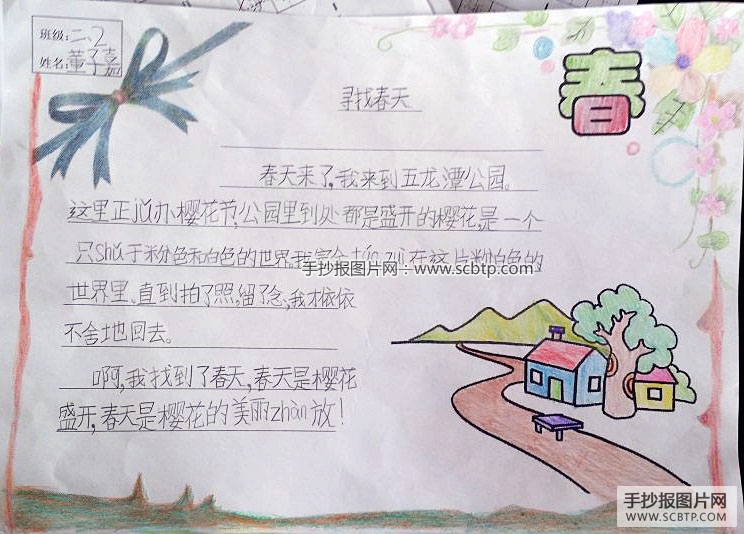 班级:二、2
姓名:董子嘉
春
寻找春天
春天来了,我来到五龙潭公园。
这里正jǔ办樱花节,公园里到处都是盛开的樱花,是一个
只shǔ于粉色和白色的世界,我完全táo zuì在这片粉白色的
手抄报图片网:www.scbtp.com
世界里、直到拍了照,留了念,我才依依
不舍地回去。
啊,我找到了春天,春天是樱花
盛开,春天是樱花的美丽zhàn放!
手抄报图片网
WWW.SCBTP.COM